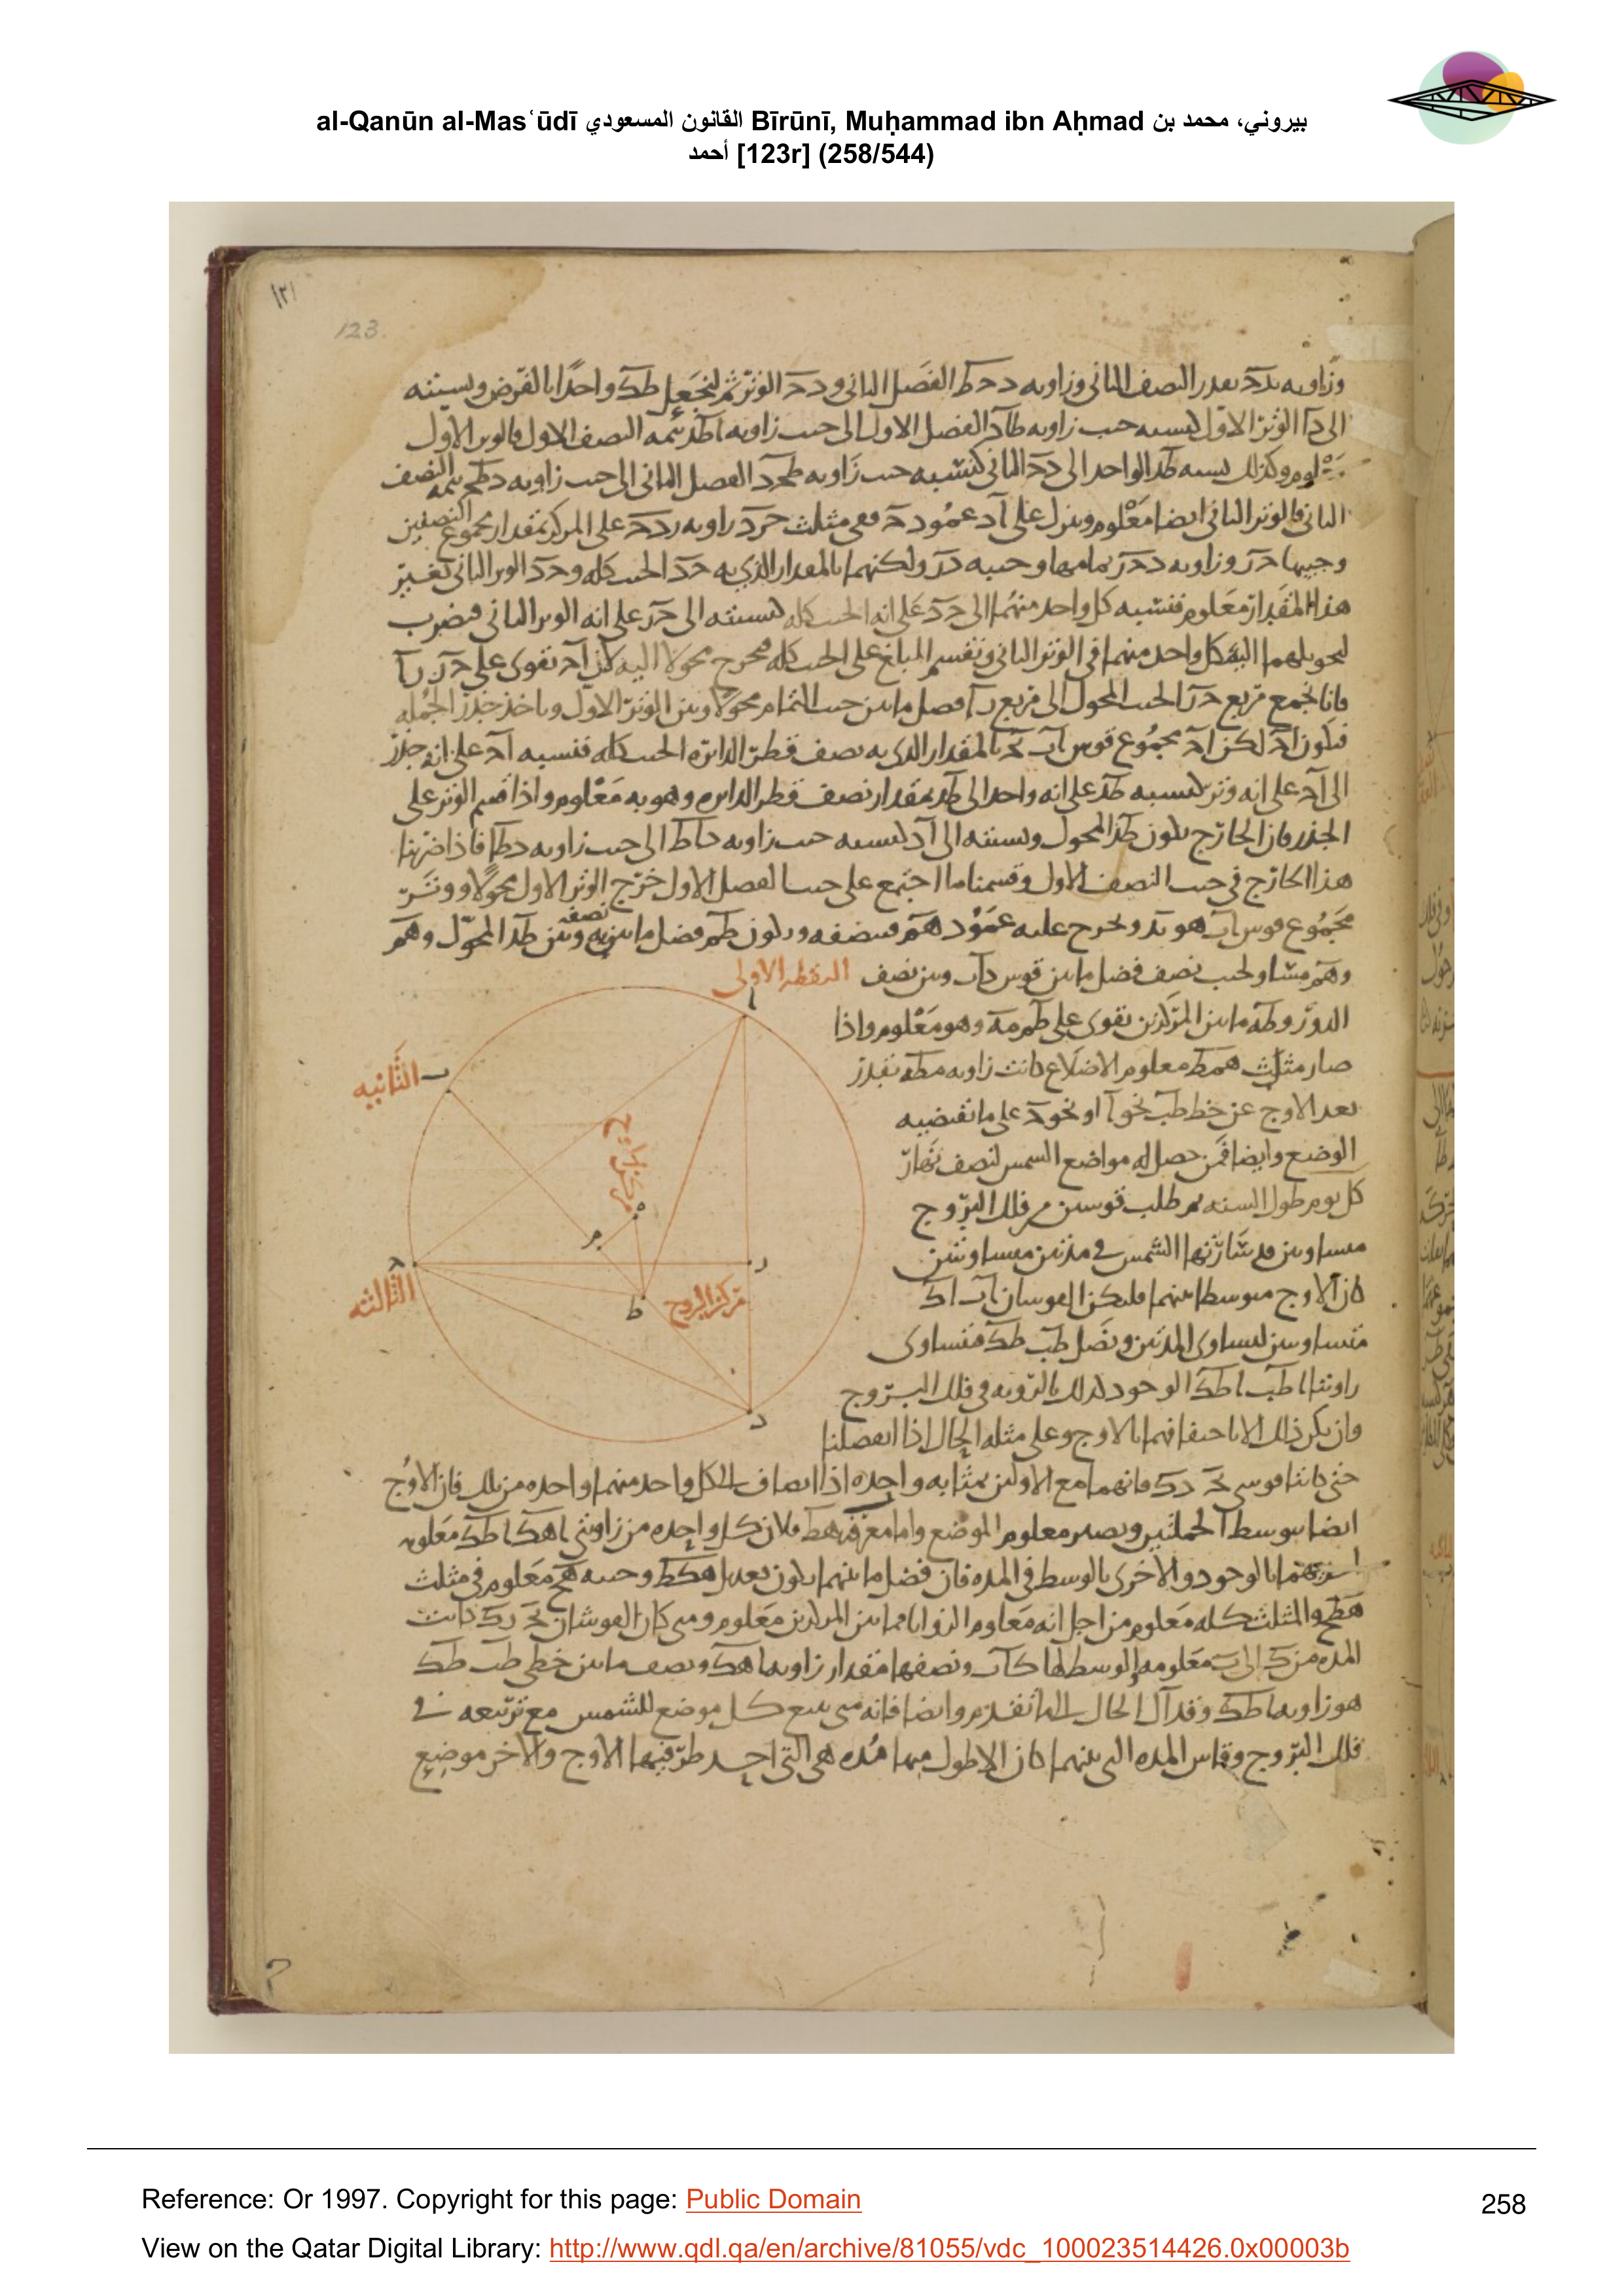 al-Qanūn al-Masʿūdī القانون المسعودي Bīrūnī, Muḥammad ibn Aḥmad بيروني، محمد بن
أحمد [123r] (258/544)
١٢١
123.
وزاويه بدح بقدر النصف الثانى وزاويه دحط الفضل الثانى ودح الوتر ثم لنجعل طد واحدا بالفرض ونسبته
الى دا الوتر الاول كنسبه جيب زاويه طاد الفضل الاول الى جيب زاويه اطد تتمه النصف الاول فالوتر الاول
وكذلك نسبه طد الواحد الى دح الثانى كنسبه جيب زاويه طحد الفضل الثانى الى جيب زاويه دطح تتمه النصف
الثانى فالوتر الثانى ايضا معلوم وننزل على اد عمود حر ففى مثلث حرد زاويه ردح على المركز بمقدار مجموع النصفين
وجيبها حر وزاويه دحر تمامها وجيبه در ولكنهما بالمقدار الذي به حد الجيب كله وحد الوتر الثانى بغير
هذا المقدار معلوم فنسبه كل واحد منهما الى حد على انه الجيب كله كنسبته الى حد على انه الوتر الثانى فنضرب
لتحويلهما اليه كل واحد منهما فى الوتر الثانى ونقسم المبلغ على الجيب كله فيخرج محولا اليه لكن اح تقوى على حر را
فانا نجمع مربع حر الجيب المحول الى مربع را فضل ما بين جيب التمام محولا وبين الوتر الاول وناخذ جذر الجمله
فيكون اح لكن اح مجموع قوس اب بح بالمقدار الذى به نصف قطر الدائره الجيب كله فنسبه اح على انه جذر
الى اح على انه وتر كنسبه طد على انه واحد الى طد بمقدار نصف قطر الدايره وهو به معلوم واذا قسم الوتر على
الجذر فان الخارج يكون طد المحول ونسبته الى اد كنسبه جيب زاويه داط الى جيب زاويه دطا فاذا ضربنا
هذا الخارج فى جيب النصف الاول وقسمنا ما اجتمع على جيب الفضل الاول خرج الوتر الاول محولا ووتر
مجموع قوس اب هو بد ونخرج عليه عمود هم فينصفه ويكون طم فضل ما بين نصفه وبين طد المحول وهم
وهم مساو لجيب نصف فضل ما بين قوس داب وبين نصف
النقطه الاولى
الدور وطه ما بين المركزين تقوى على طم مه وهو معلوم واذا
صار مثلث همط معلوم الاضلاع كانت زاويه مطه بقدر
الثانيه
بعد الاوج عن خط طب نحو ا او نحو د على ما تقتضيه
مركز الاوج
الوضع وايضا فمن حصل له مواضع الشمس لنصف نهار
كل يوم طول السنه ثم طلب قوسين من فلك البروج
متساويتين قد سارتها الشمس فى مدتين متساويتين
كان الاوج متوسطا بينهما فليكن القوسان اب اك
مركز البروج
الثالثه
متساويتين لتساوى المدتين ونصل طب طك فتساوى
زاويتا اطب اطك الوجود كذلك بالرويه فى فلك البروج
ولن يكن ذلك الا باحتفافهما بالاوج وعلى مثله الحال اذا انفصلنا
حتى كانتا قوسى بح دك فانهما مع الاوليين بمثابه واحده اذا انضاف الى كل واحد منهما واحده من تلك فان الاوج
ايضا يتوسط الجملتين ويصير معلوم الموضع واما معرفه هط فلان كل واحده من زاويتى اهك اطك معلومه
بالوجود والاخرى بالوسط فى المده فان فضل ما بينهما يكون تعديل هكط وجيبه هح معلوم فى مثلث
هطح والمثلث كله معلوم من اجل انه معلوم الزوايا فما بين المركزين معلوم ومتى كان القوسان بح دك كانت
المده من ك الى ب معلومه الوسط لها كاب ونصفها مقدار زاويه اهك ونصف ما بين خطى طب طك
هو زاويه اطك وقد آل الحال الى ما تقدم وايضا فانه متى تتبع كل موضع للشمس مع تربيعه فى
فلك البروج وقاس المده التى بينهما كان الاطول منها مده هى التى احد طرفيها الاوج والاخر موضع
Reference: Or 1997. Copyright for this page: Public Domain
258
View on the Qatar Digital Library: http://www.qdl.qa/en/archive/81055/vdc_100023514426.0x00003b